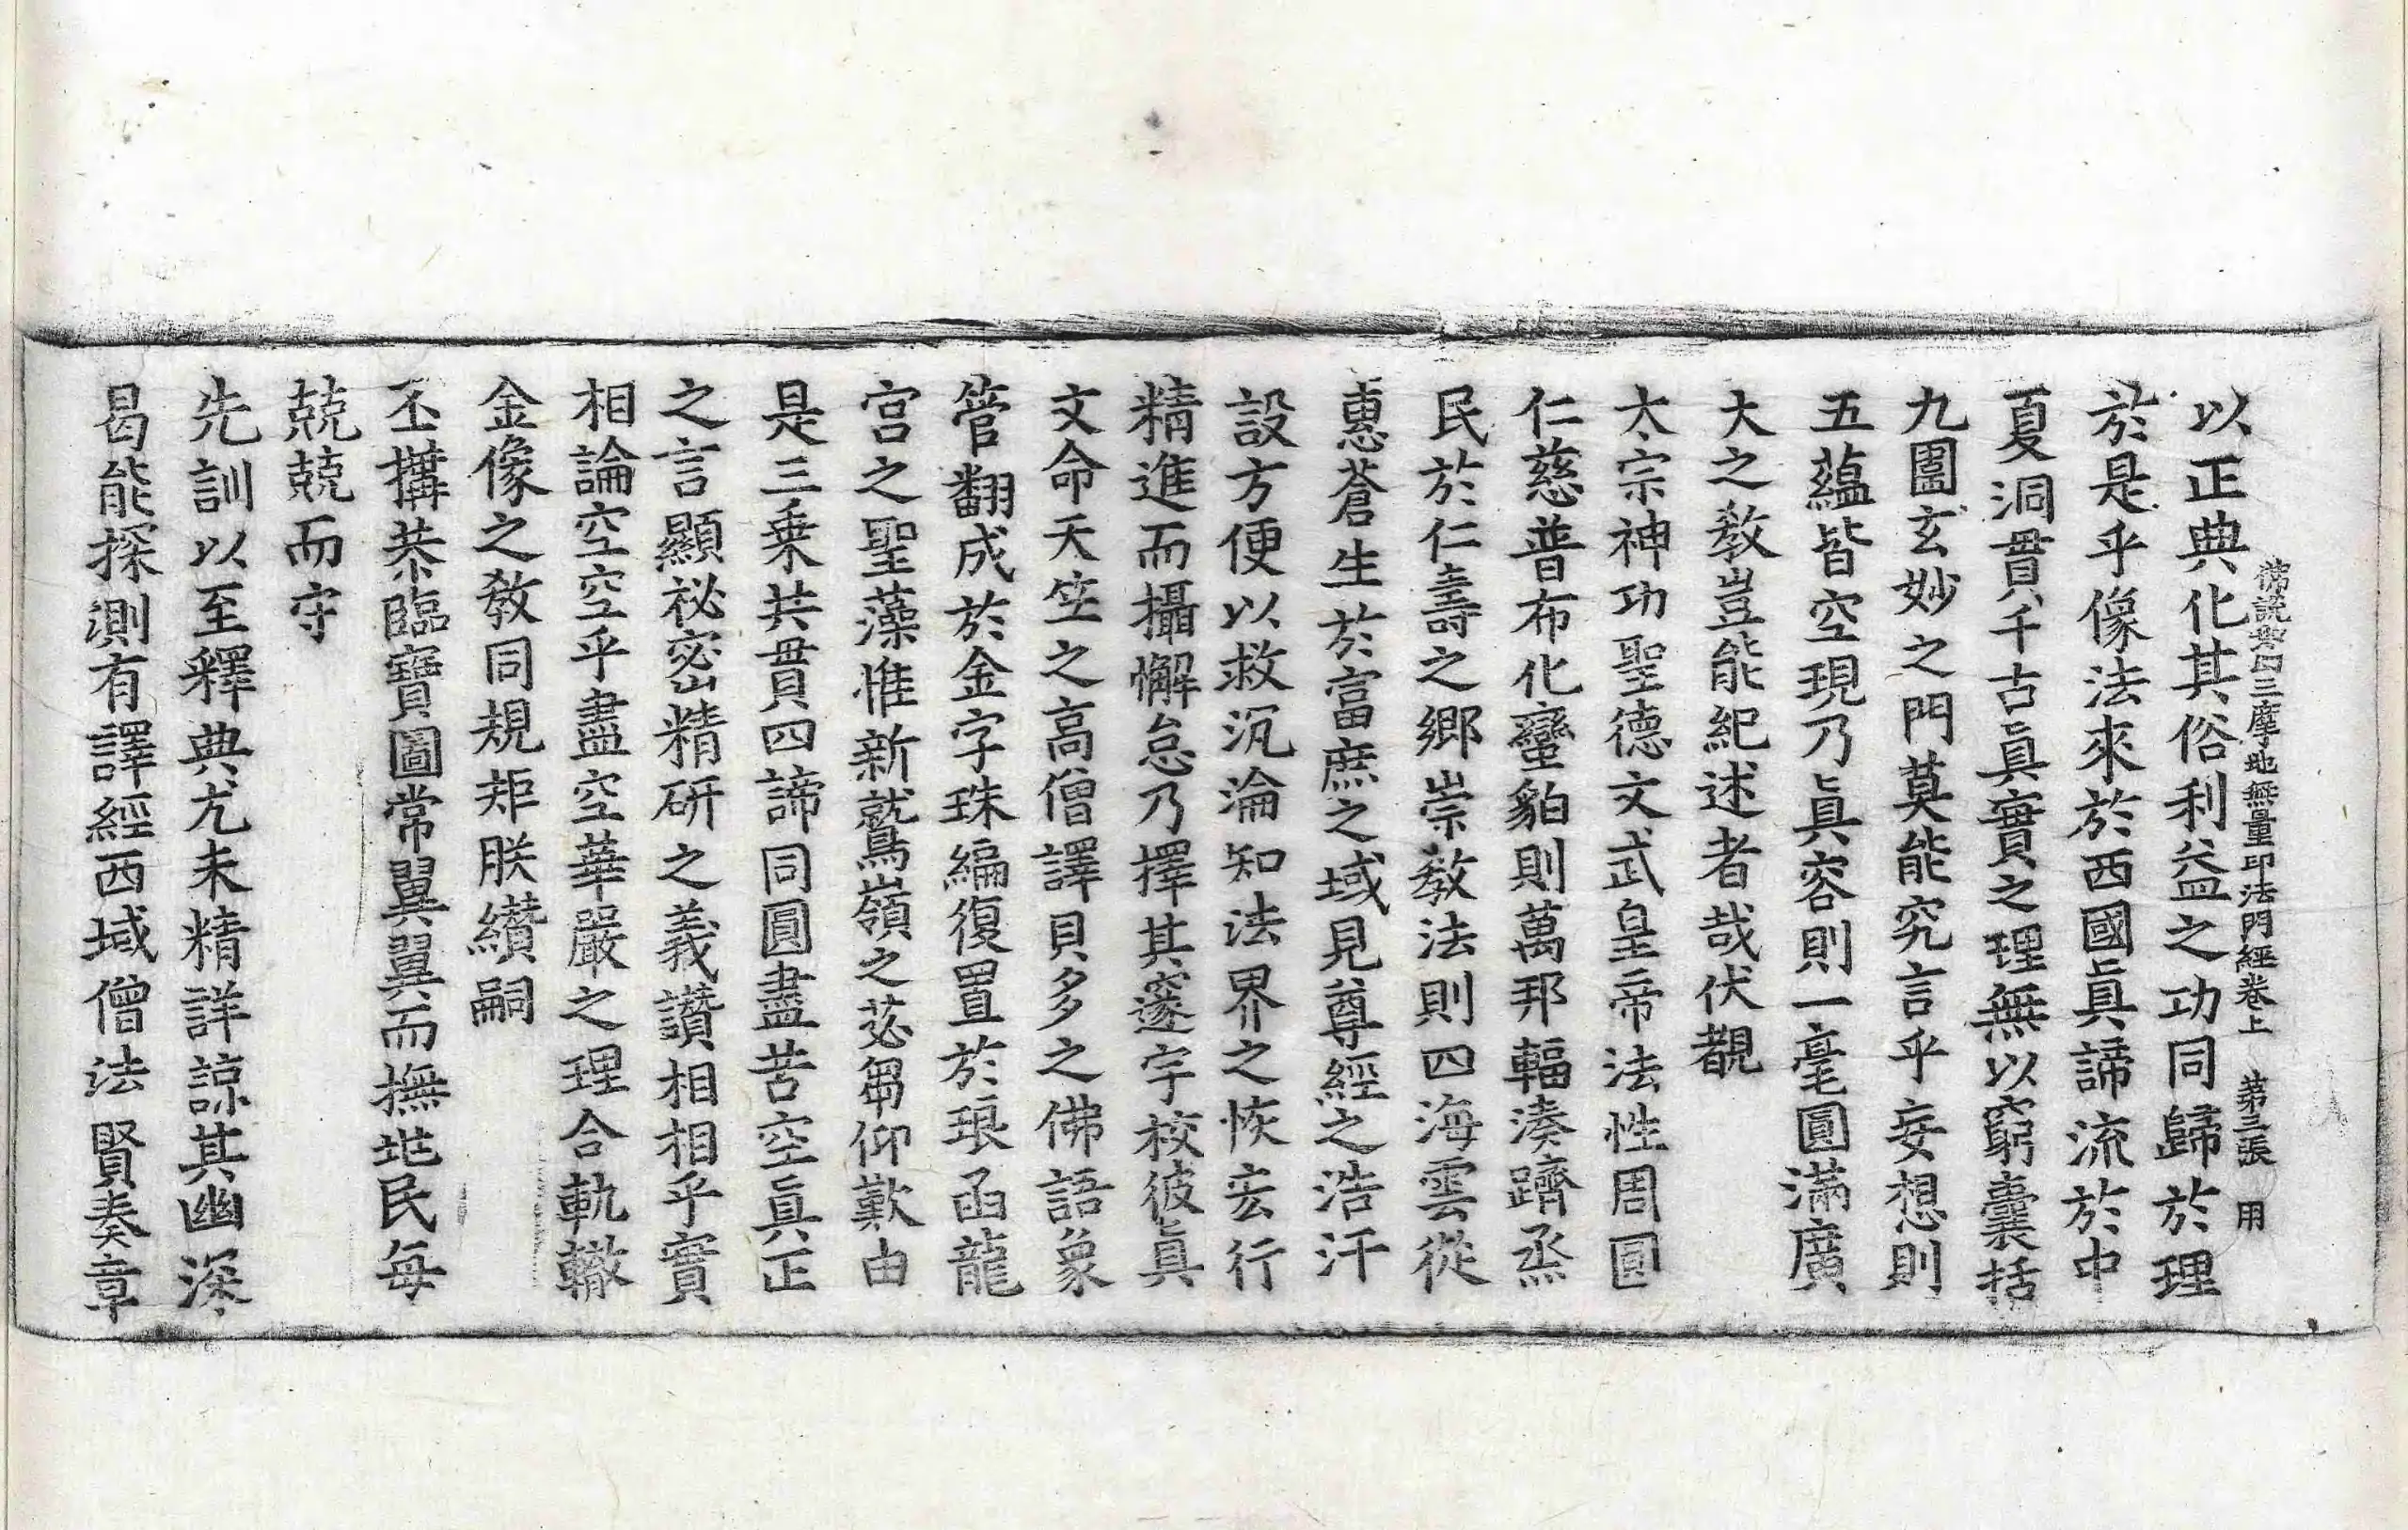 佛說聖曰三摩地無量印法門經卷上 第三張 用
以正典化其俗利益之功同歸於理
於是乎像法來於西國眞諦流於中
夏洞貫千古眞實之理無以窮囊括
九圍玄妙之門莫能究言乎妄想則
五蘊皆空現乃眞容則一毫圓滿廣
大之敎豈能紀述者哉伏覩
太宗神功聖德文武皇帝法性周圓
仁慈普布化蠻貊則萬邦輻湊躋烝
民於仁壽之鄉崇敎法則四海雲從
惠蒼生於富庶之域見尊經之浩汗
設方便以救沉淪知法界之恢宏行
精進而攝懈怠乃擇其邃宇校彼眞
文命天竺之高僧譯貝多之佛語象
管翻成於金字珠編復置於琅函龍
宮之聖藻惟新鷲嶺之苾蒭仰歎由
是三乘共貫四諦同圓盡苦空眞正
之言顯祕密精硏之義讚相相乎實
相論空空乎盡空華嚴之理合軌轍
金像之敎同規矩朕纘嗣
丕搆恭臨寶圖常翼翼而撫玆民每
兢兢而守
先訓以至釋典尤未精詳諒其幽深
曷能探測有譯經西域僧法賢奏章